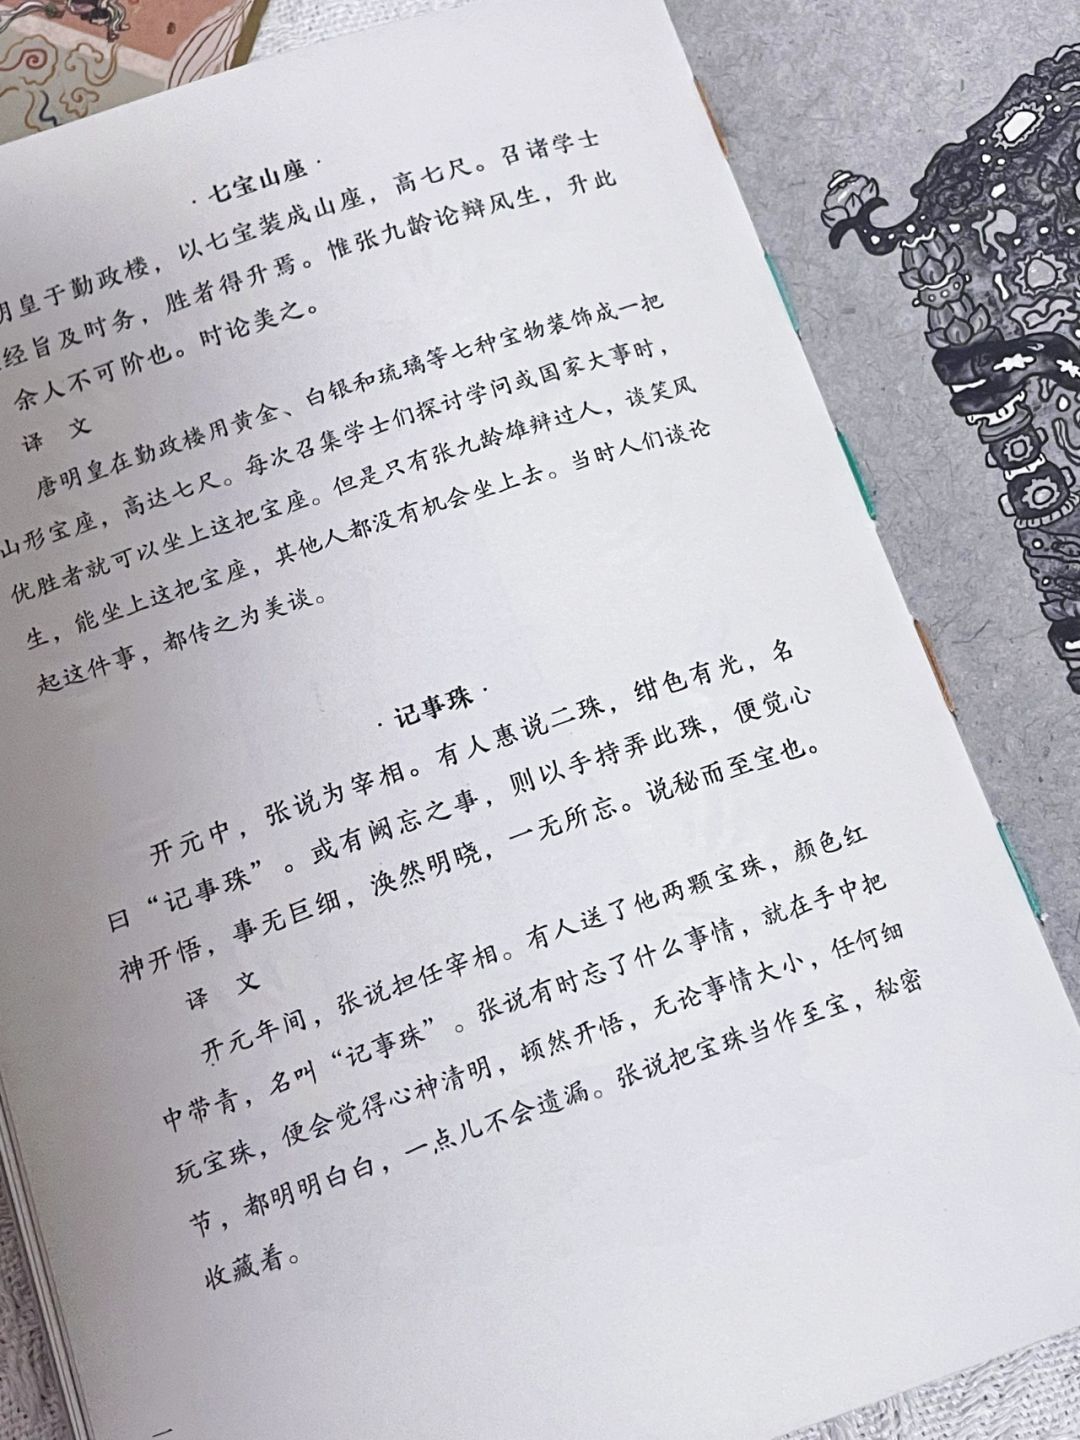 ·七宝山座·
明皇于勤政楼，以七宝装成山座，高七尺。召诸学士
经旨及时务，胜者得升焉。惟张九龄论辩风生，升此
余人不可阶也。时论美之。
译 文
唐明皇在勤政楼用黄金、白银和琉璃等七种宝物装饰成一把
山形宝座，高达七尺。每次召集学士们探讨学问或国家大事时，
优胜者就可以坐上这把宝座。但是只有张九龄雄辩过人，谈笑风
生，能坐上这把宝座，其他人都没有机会坐上去。当时人们谈论
起这件事，都传之为美谈。
·记事珠·
开元中，张说为宰相。有人惠说二珠，绀色有光，名
曰“记事珠”。或有阙忘之事，则以手持弄此珠，便觉心
神开悟，事无巨细，涣然明晓，一无所忘。说秘而至宝也。
译 文
开元年间，张说担任宰相。有人送了他两颗宝珠，颜色红
中带青，名叫“记事珠”。张说有时忘了什么事情，就在手中把
玩宝珠，便会觉得心神清明，顿然开悟，无论事情大小，任何细
节，都明明白白，一点儿不会遗漏。张说把宝珠当作至宝，秘密
收藏着。
一